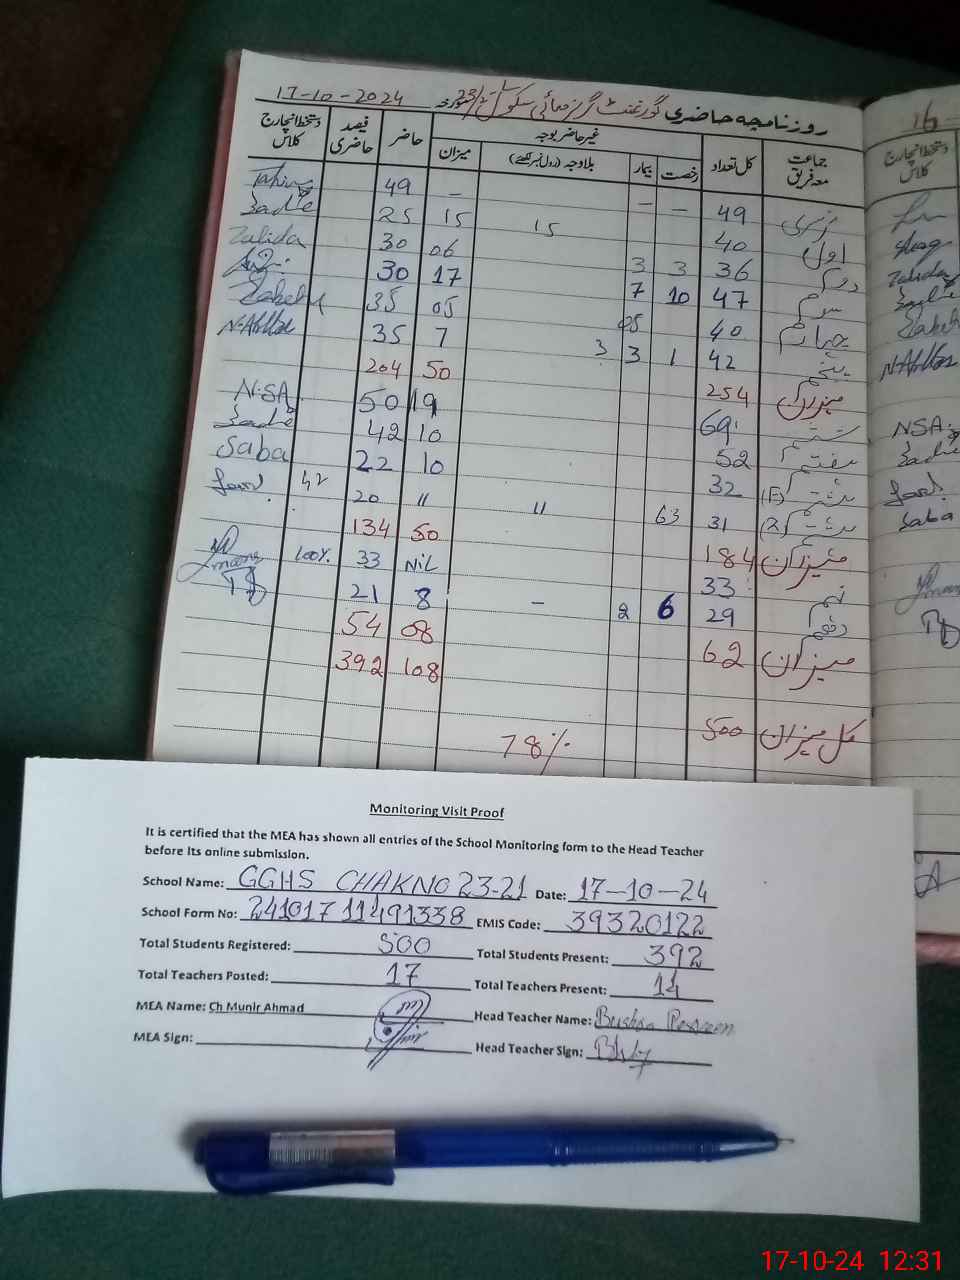 17-10-2024
روزنامچہ حاضری گورنمنٹ گرلز ہائی سکول 23/21 مورخہ
جماعت معہ فریق کل تعداد غیر حاضر بوجہ حاضر فیصد حاضری دستخط انچارج کلاس
رخصت بیمار بلاوجہ (رول نمبر لکھیئے) میزان
نرسری 49 – – – 49
اول 40 15 15 25 Sadie
دوم 36 3 3 06 30 Zahida
سوم 47 10 7 17 30
چہارم 40 05 05 35
پنجم 42 1 3 3 7 35
میزان 254 50 204
ششم 69 19 50 N.SA
ہفتم 52 10 42 Sadie
ہشتم 32 10 22 Saba
ہشتم 31 63 11 11 20
میزان 184 50 134
نہم 33 NiL 33 100%
دہم 29 6 2 – 8 21
میزان 62 08 54
108 392
کل میزان 500
78%
16
دستخط انچارج کلاس
Zahida
NSA
Saba
Monitoring Visit Proof
It is certified that the MEA has shown all entries of the School Monitoring form to the Head Teacher
before its online submission.
School Name: GGHS CHAKNO 23-21 Date: 17-10-24
School Form No: 241017 11491338 EMIS Code: 39320122
Total Students Registered: 500 Total Students Present: 392
Total Teachers Posted: 17 Total Teachers Present: 14
MEA Name: Ch Munir Ahmad Head Teacher Name: Bushra Perveen
MEA Sign: Head Teacher Sign:
17-10-24 12:31